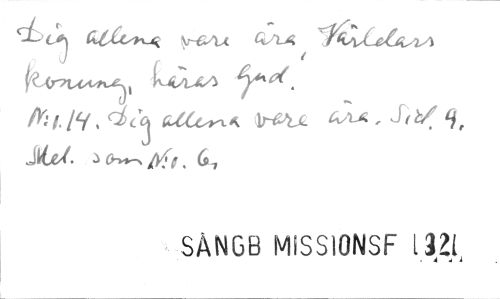 Dig allena vare ära, Världars
konung, häras Gud.
N:o.14. Dig allena vare ära. Sid. 9.
Mel. som N:o. 6,
SÅNGB MISSIONSF 1321